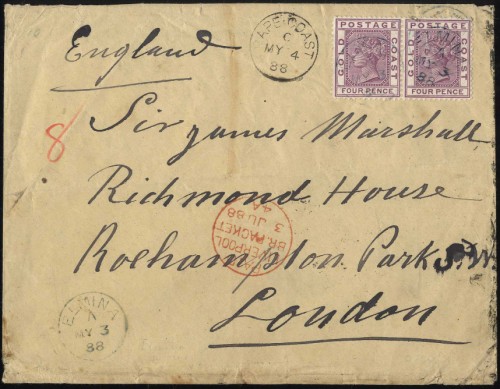 England
CAPE COAST
C
MY 4
88
POSTAGE
GOLD COAST
FOUR PENCE
POSTAGE
GOLD COAST
FOUR PENCE
ELMINA
A
MY 3
88
8
Sir James Marshall
Richmond House
LIVERPOOL
BR. PACKET
3 JU 88
4A
Roehampton Park S.W.
London
ELMINA
A
MY 3
88